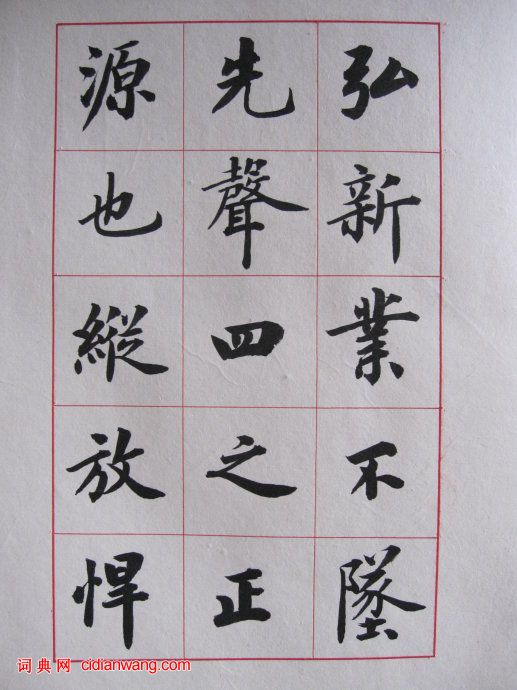 弘新業不墜
先聲四之正
源也縱放悍
词典网 cidianwang.com